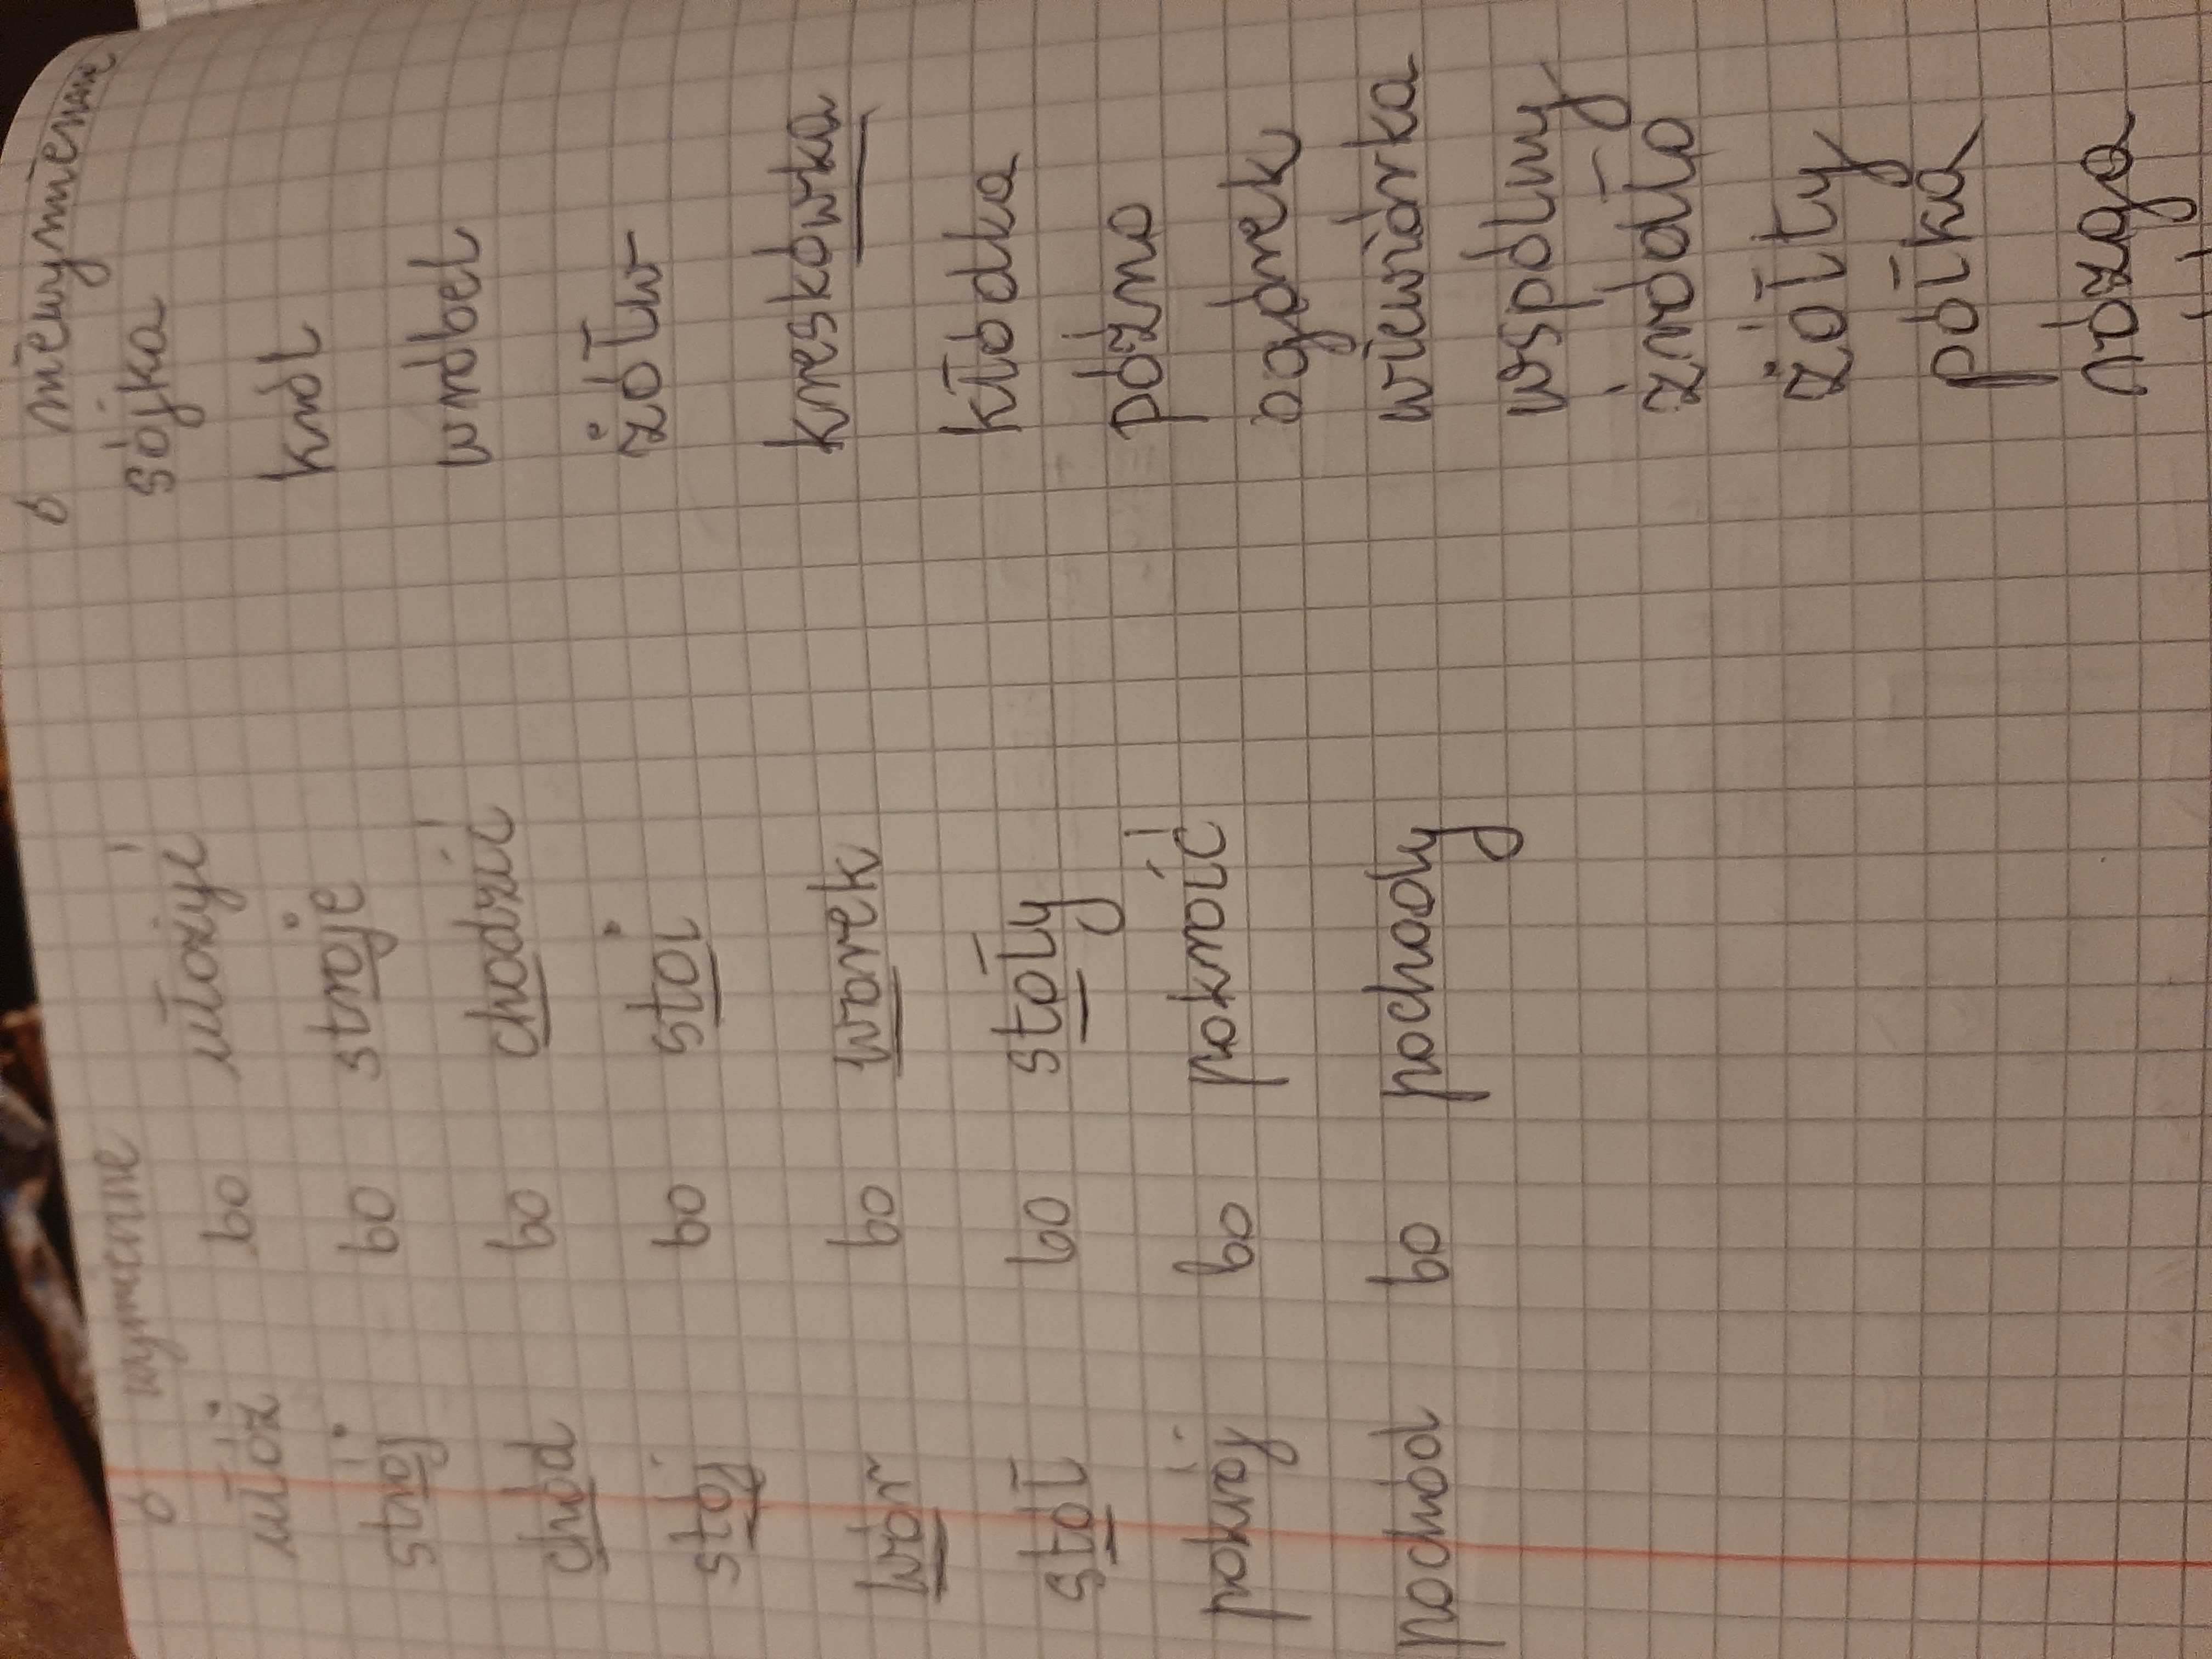 ó wymienne
ułóż bo ułożyć
strój bo stroje
chód bo chodzić
stój bo stoi
wór bo worek
stół bo stoły
pokrój bo pokroić
pochód bo pochody
ó niewymienne
sójka
król
wróbel
żółw
kreskówka
kłódka
późno
ogórek
wiewiórka
wspólny
źródło
żółty
półka
rózga